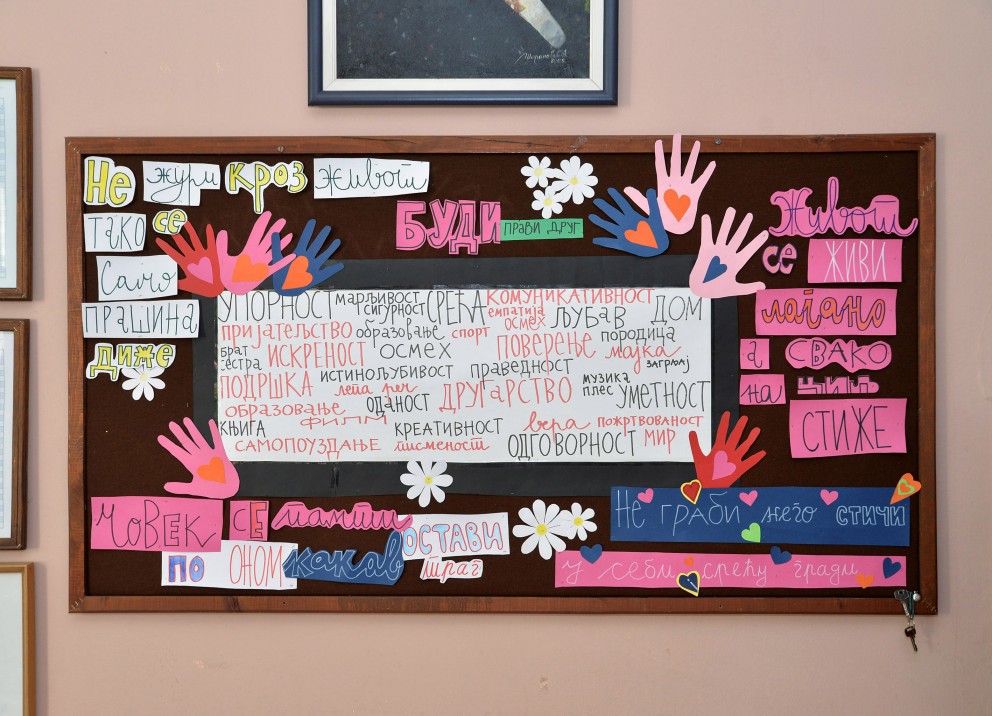 Не жури кроз живот
тако се
само
прашина
диже
БУДИ ПРАВИ ДРУГ
Живот
се ЖИВИ
лагано
а СВАКО
на ЦИЉ
СТИЖЕ
УПОРНОСТ марљивост сигурност СРЕЋА КОМУНИКАТИВНОСТ емпатија осмех ЉУБАВ ДОМ
пријатељство образовање спорт ПОВЕРЕЊЕ породица
брат сестра ИСКРЕНОСТ ОСМЕХ мајка загрљај
ПОДРШКА ИСТИНОЉУБИВОСТ праведност
лепа реч ДРУГАРСТВО музика плес УМЕТНОСТ
образовање оданост
КЊИГА ФИЛМ КРЕАТИВНОСТ вера ПОЖРТВОВАНОСТ
САМОПОУЗДАЊЕ писменост ОДГОВОРНОСТ МИР
ЧОВЕК СЕ памти
ПО ОНОМ какав ОСТАВИ
траг
Не ГРАБИ него СТИЧИ
у себи срећу гради